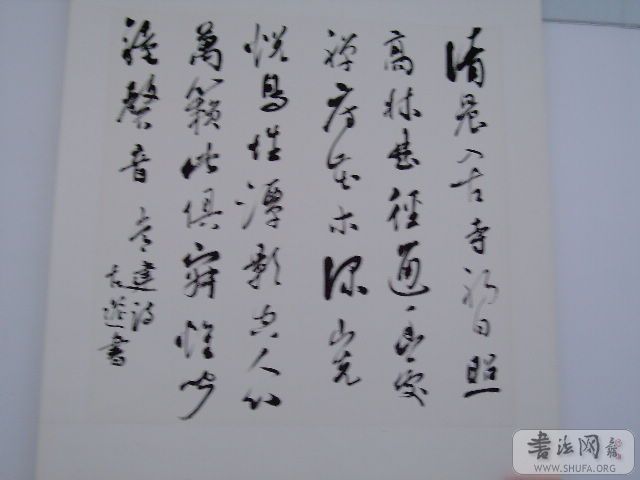 清晨入古寺初日照
高林曲徑通幽處
禪房花木深山光
悦鳥性潭影空人心
萬籟此俱寂惟聞
鐘磬音 常建诗
書
書法网
WWW.SHUFA.ORG